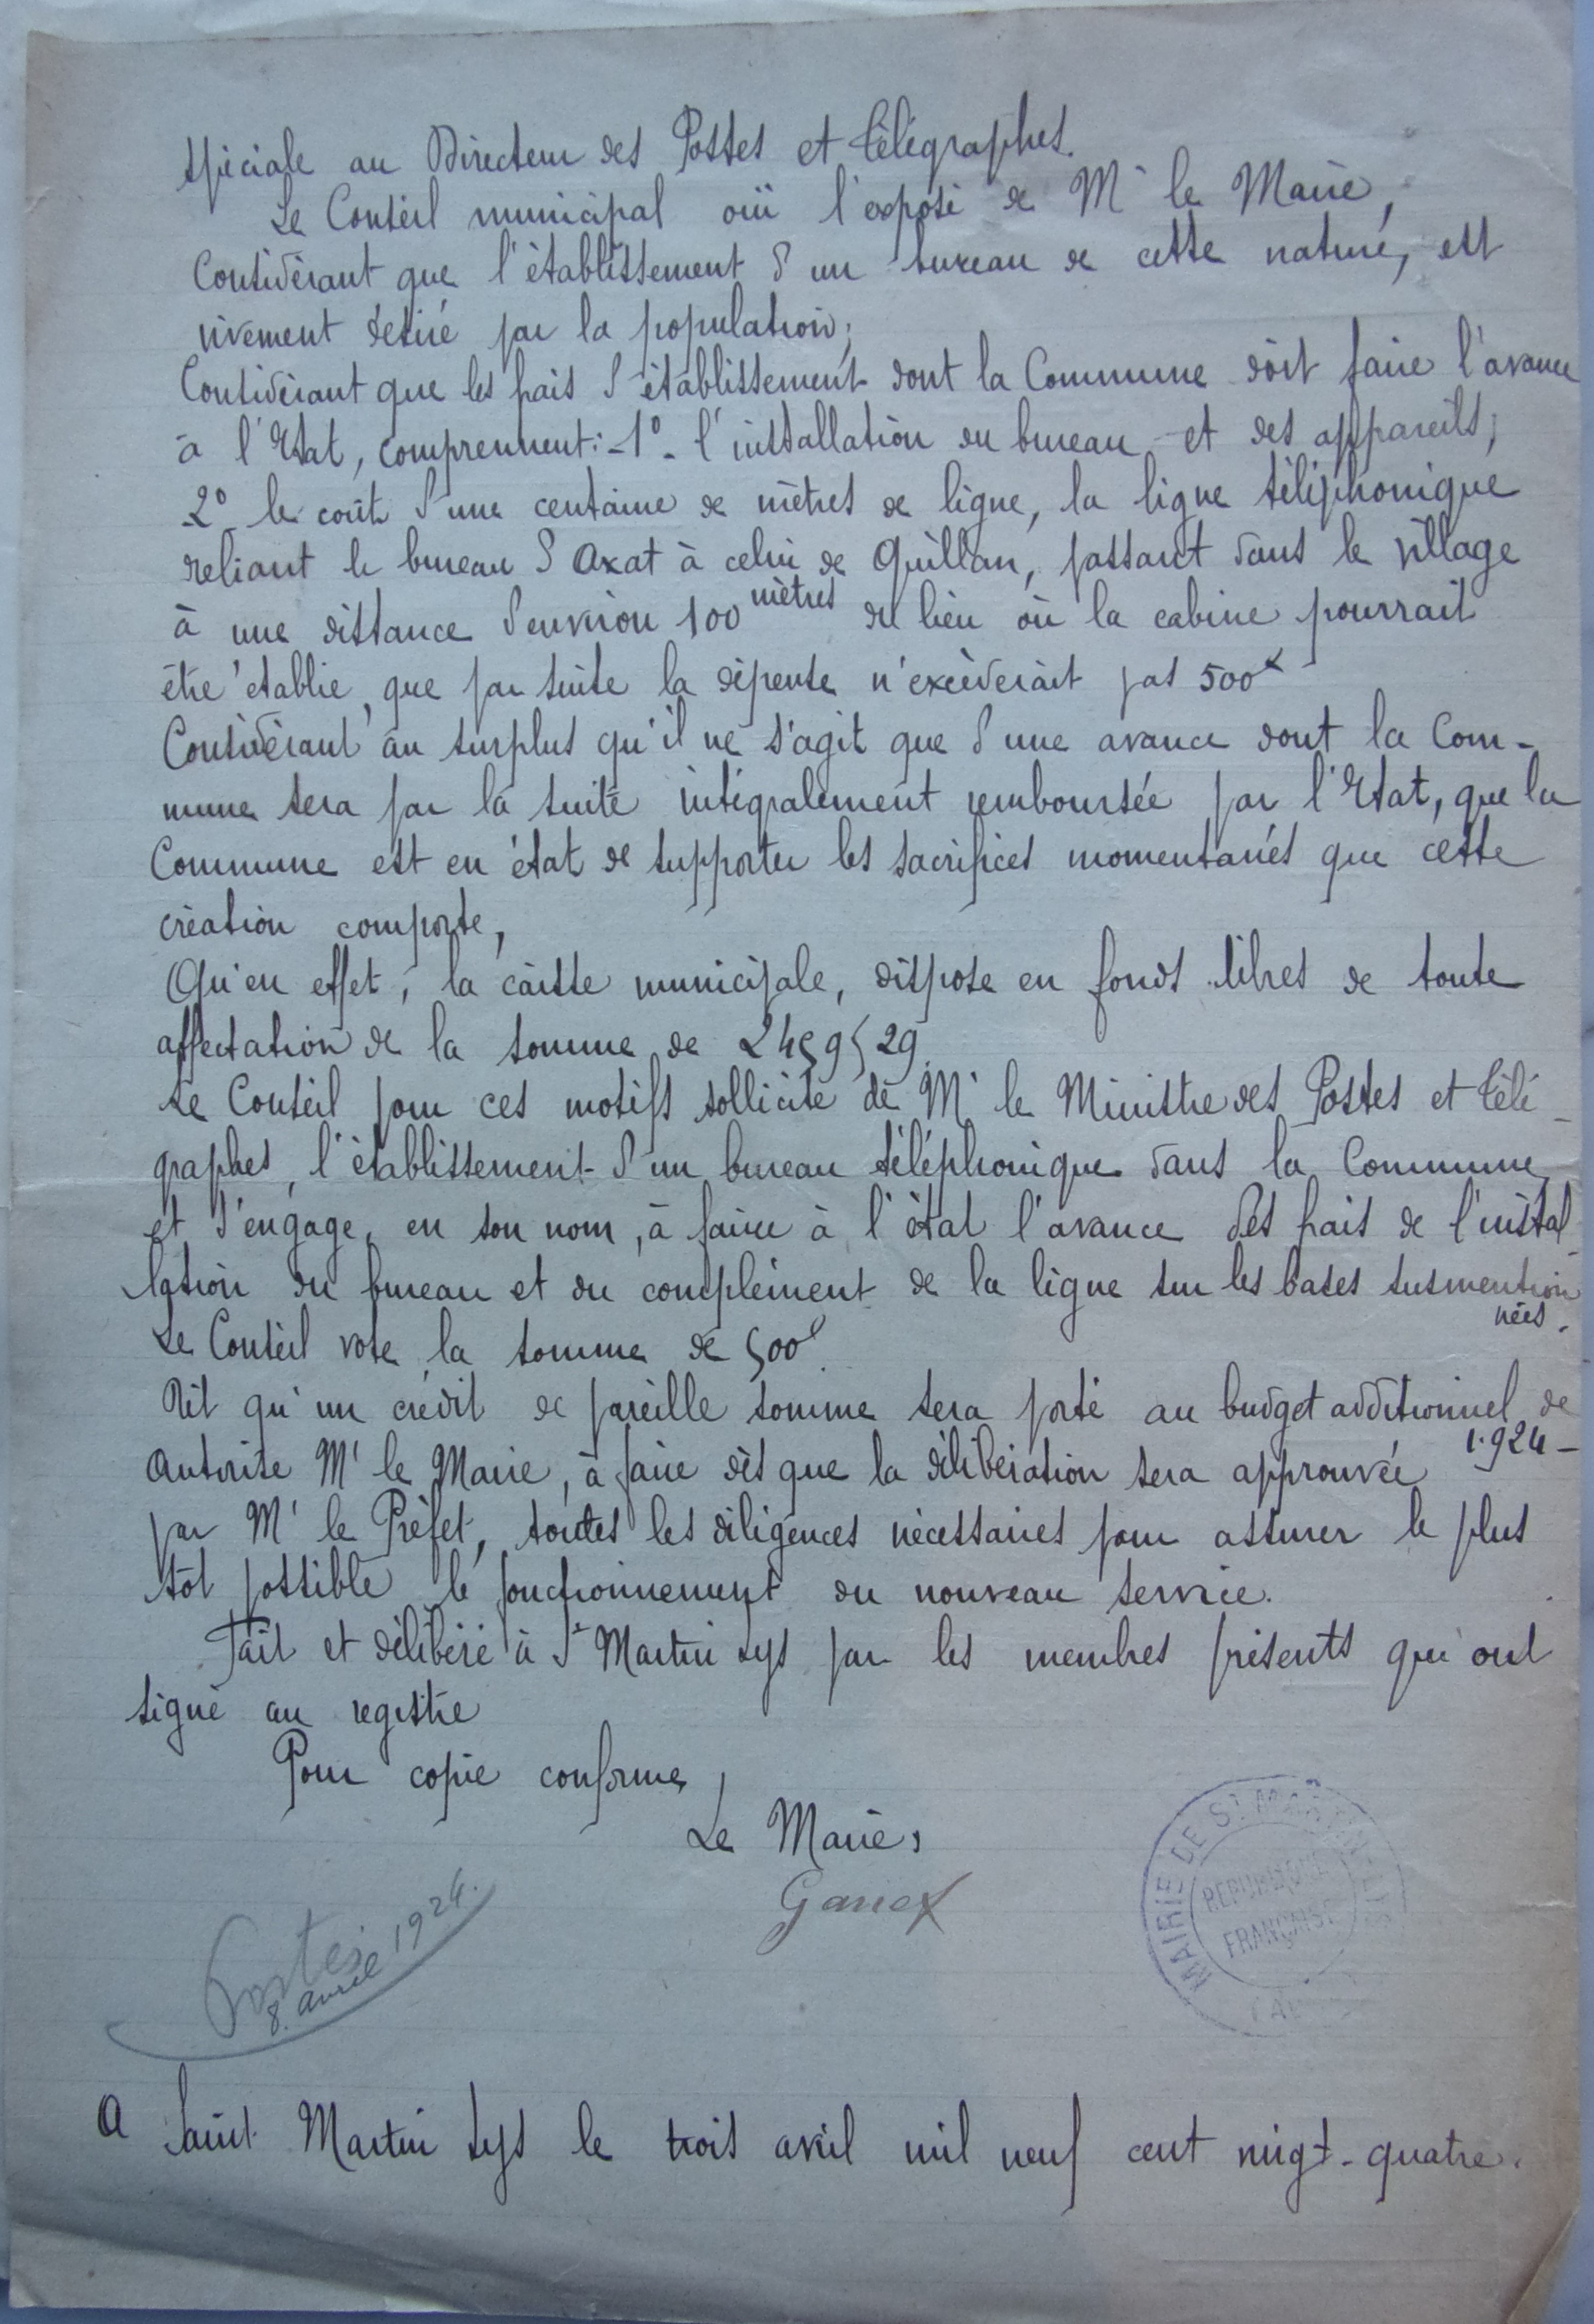 spéciale au Directeur des Postes et Télégraphes.
Le Conseil municipal ouï l'exposé de Mr le Maire,
Considérant que l'établissement d'un bureau de cette nature, est
vivement désiré par la population;
Considérant que les frais d'établissement dont la Commune doit faire l'avance
à l'Etat, comprennent: - 1º - l'installation du bureau et des appareils;
2º le coût d'une centaine de mètres de ligne, la ligne téléphonique
reliant le bureau d'Axat à celui de Quillan, passant dans le village
à une distance d'environ 100 mètres du lieu où la cabine pourrait
être établie, que par suite la dépense n'excèderait pas 500f
Considérant au surplus qu'il ne s'agit que d'une avance dont la Com-
mune sera par la suite intégralement remboursée par l'Etat, que la
Commune est en état de supporter les sacrifices momentanés que cette
création comporte,
Qu'en effet, la caisse municipale, dispose en fonds libres de toute
affectation de la somme de 2459f29.
Le Conseil pour ces motifs sollicite de Mr le Ministre des Postes et Télé-
graphes, l'établissement d'un bureau téléphonique dans la Commune
et s'engage, en son nom, à faire à l'état l'avance des frais de l'instal-
lation du bureau et du complément de la ligne sur les bases susmention
nées.
Le Conseil vote la somme de 500f.
Dit qu'un crédit de pareille somme sera porté au budget additionnel de
1.924 -
Autorise Mr le Maire, à faire dès que la délibération sera approuvée
par Mr le Préfet, toutes les diligences nécessaires pour assurer le plus
tôt possible le fonctionnement du nouveau service.
Fait et délibéré à St Martin Lys par les membres présents qui ont
signé au registre
Pour copie conforme,
Le Maire,
MAIRIE DE ST MARTIN
RÉPUBLIQUE
FRANÇAISE
Postes
8. avril 1924.
A Saint Martin Lys le trois avril mil neuf cent vingt-quatre.